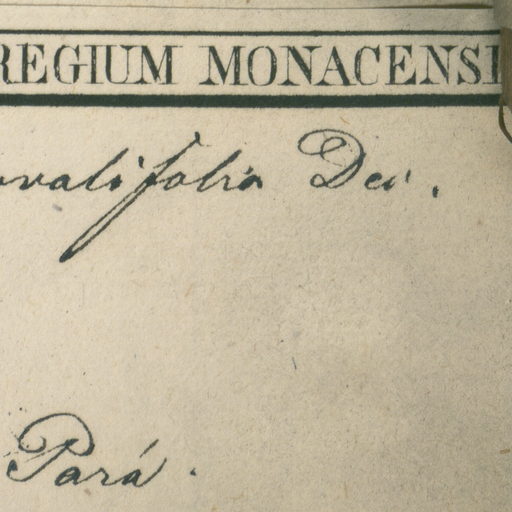 REGIUM MONACENSE
ovalifolia Dev.
Pará.